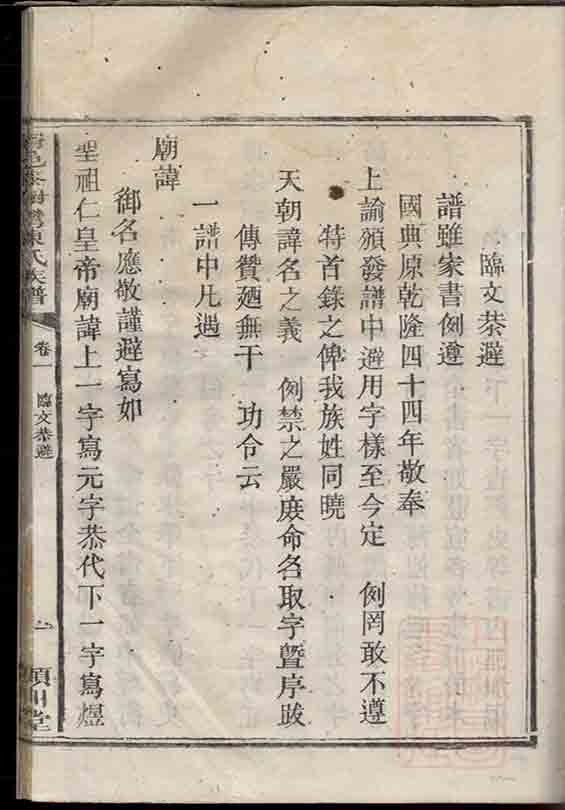 臨文恭避
譜雖家書例遵
國典原乾隆四十四年敬奉
上諭頒發譜中避用字樣至今定 例罔敢不遵
特首錄之俾我族姓同曉
天朝諱名之義 例禁之嚴庶命名取字暨序跋
傳贊廼無干 功令云
一譜中凡遇
廟諱
御名應敬謹避寫如
聖祖仁皇帝廟諱上一字寫元字恭代下一字寫煜
陳氏族譜
卷一 臨文恭避
一 潁川堂